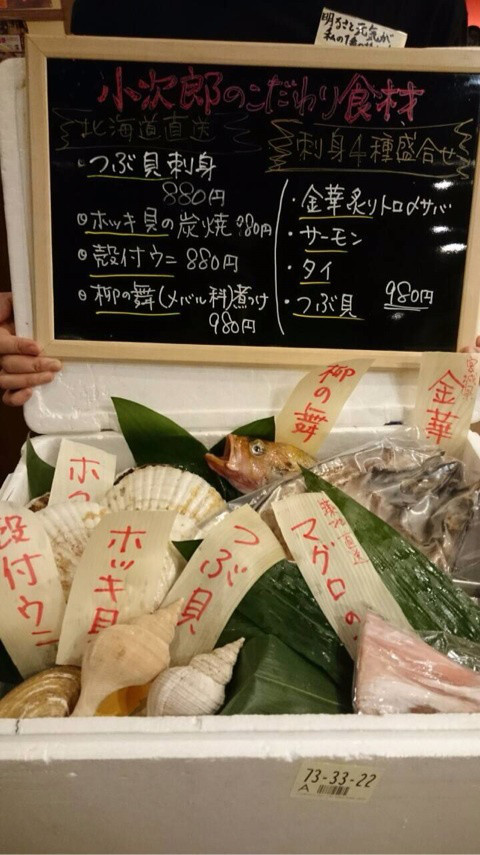 明るさと元気が
小次郎のこだわり食材
北海道直送
・つぶ貝刺身
880円
・ホッキ貝の炭焼 980円
・殻付ウニ 880円
・柳の舞(メバル科)煮つけ
980円
刺身4種盛合せ
・金華炙りトロ〆サバ
・サーモン
・タイ
・つぶ貝 980円
柳の舞
金華
ホ
殻付ウニ
ホッキ貝
つぶ貝
マグロの
73-33-22
A